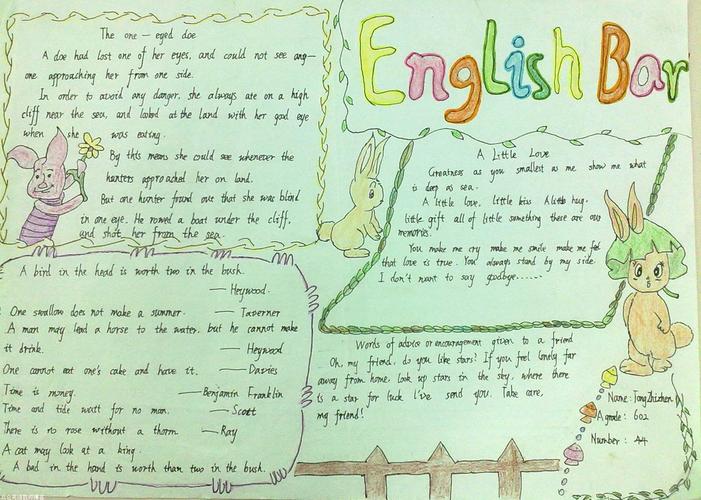 The one-eyed doe
A doe had lost one of her eyes, and could not see any-
one approaching her from one side.
In order to avoid any danger, she always ate on a high
cliff near the sea, and looked at the land with her good eye
when she was eating.
By this means she could see whenever the
hunters approached her on land.
But one hunter found out that she was blind
in one eye. He rowed a boat under the cliff.
and shot her from the sea.
English Bar
A Little Love
Greatness as you smallest as me show me what
is deep as sea.
A little love, little kiss A little hug,
little gift all of little something these are our
memories.
You make me cry make me smile make me feel
that love is true. You always stand by my side.
I don't want to say goodbye......
A bird in the head is worth two in the bush.
—Heywood.
One swallow does not make a summer. —Taverner
A man may lead a horse to the water, but he cannot make
it drink. —Heywood
One cannot eat one's cake and have it. —Davies
Time is money. —Benjamin Franklin
Time and tide wait for no man. —Scott
There is no rose without a thorn. —Ray
A cat may look at a king.
A bad in the hand is worth than two in the bush.
Words of advice or encouragement given to a friend
Oh, my friend, do you like stars? If you feel lonely far
away from home, look up stars in the sky, where there
is a star for luck I've send you. Take care,
my friend!
Name: TongZhizhen
Agrade: 602
Number: 44